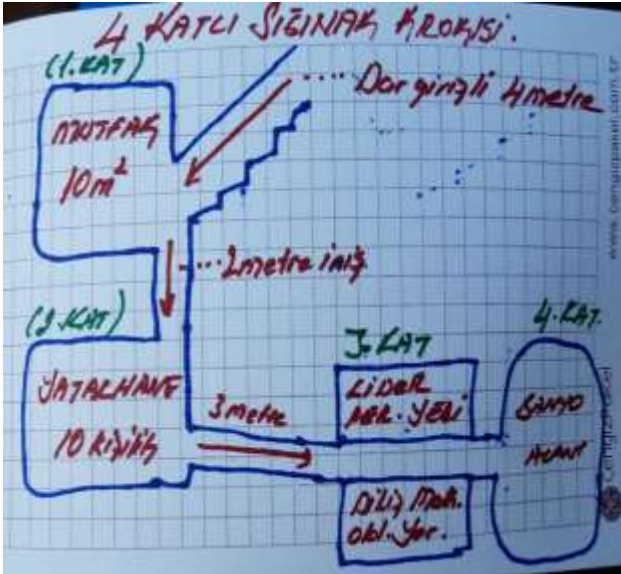 4 KATLI SIĞINAK KROKİSİ.
(1. KAT)
.... Dar girişli 4 metre
MUTFAK
10 m²
....2 metre iniş
(2. KAT)
YATAKHANE
10 kişilik
3 metre
3. KAT
LİDER
YERİ
4. KAT.
BANYO
www.cengizpakel.com.tr